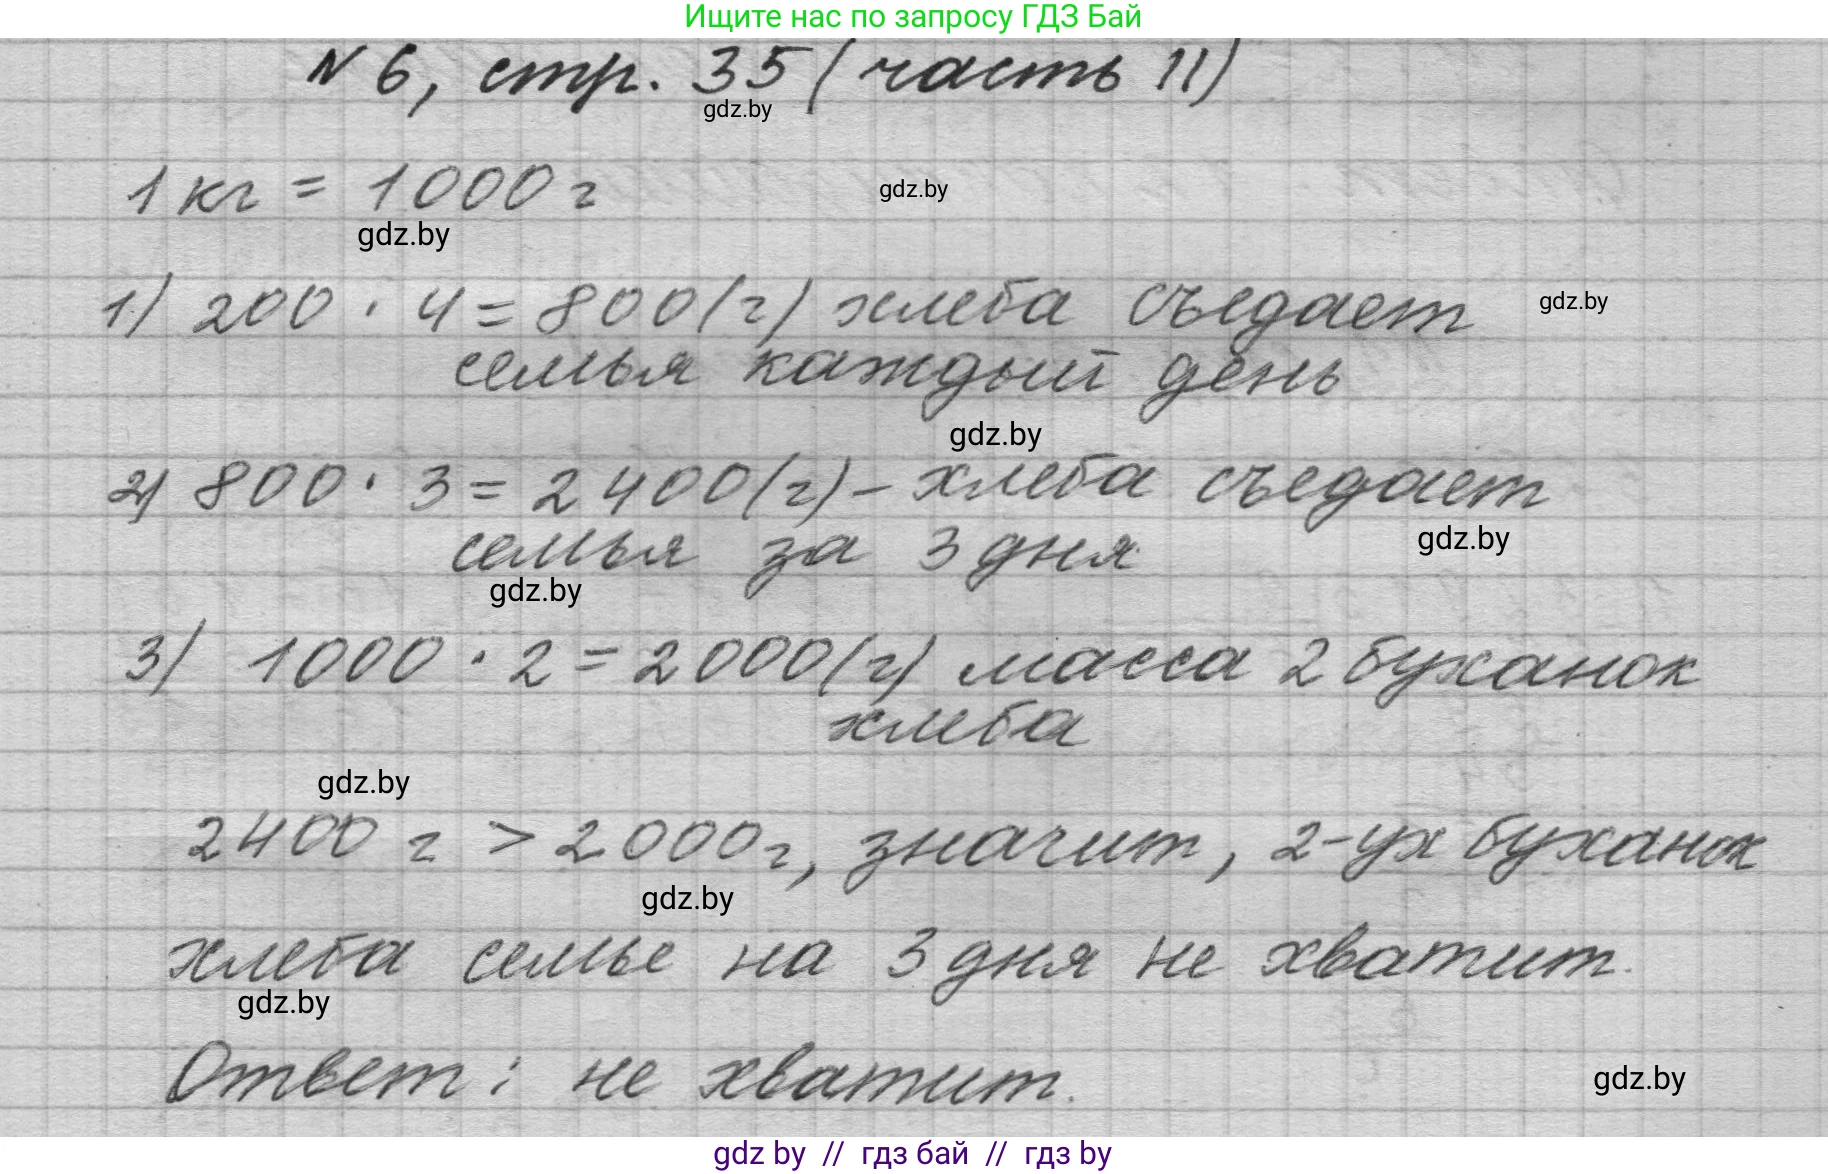 Ищите нас по запросу ГДЗ Бай
№ 6, стр. 35 (часть II)
gdz.by
1 кг = 1000 г
gdz.by
gdz.by
1) 200 · 4 = 800 (г) хлеба съедает
gdz.by
семья каждый день
gdz.by
2) 800 · 3 = 2400 (г) – хлеба съедает
gdz.by
семья за 3 дня
gdz.by
3) 1000 · 2 = 2000 (г) масса 2 буханок
хлеба
gdz.by
2400 г > 2000 г, значит, 2-ух буханок
gdz.by
хлеба семье на 3 дня не хватит.
gdz.by
Ответ: не хватит.
gdz.by
gdz by // гдз бай // гдз by